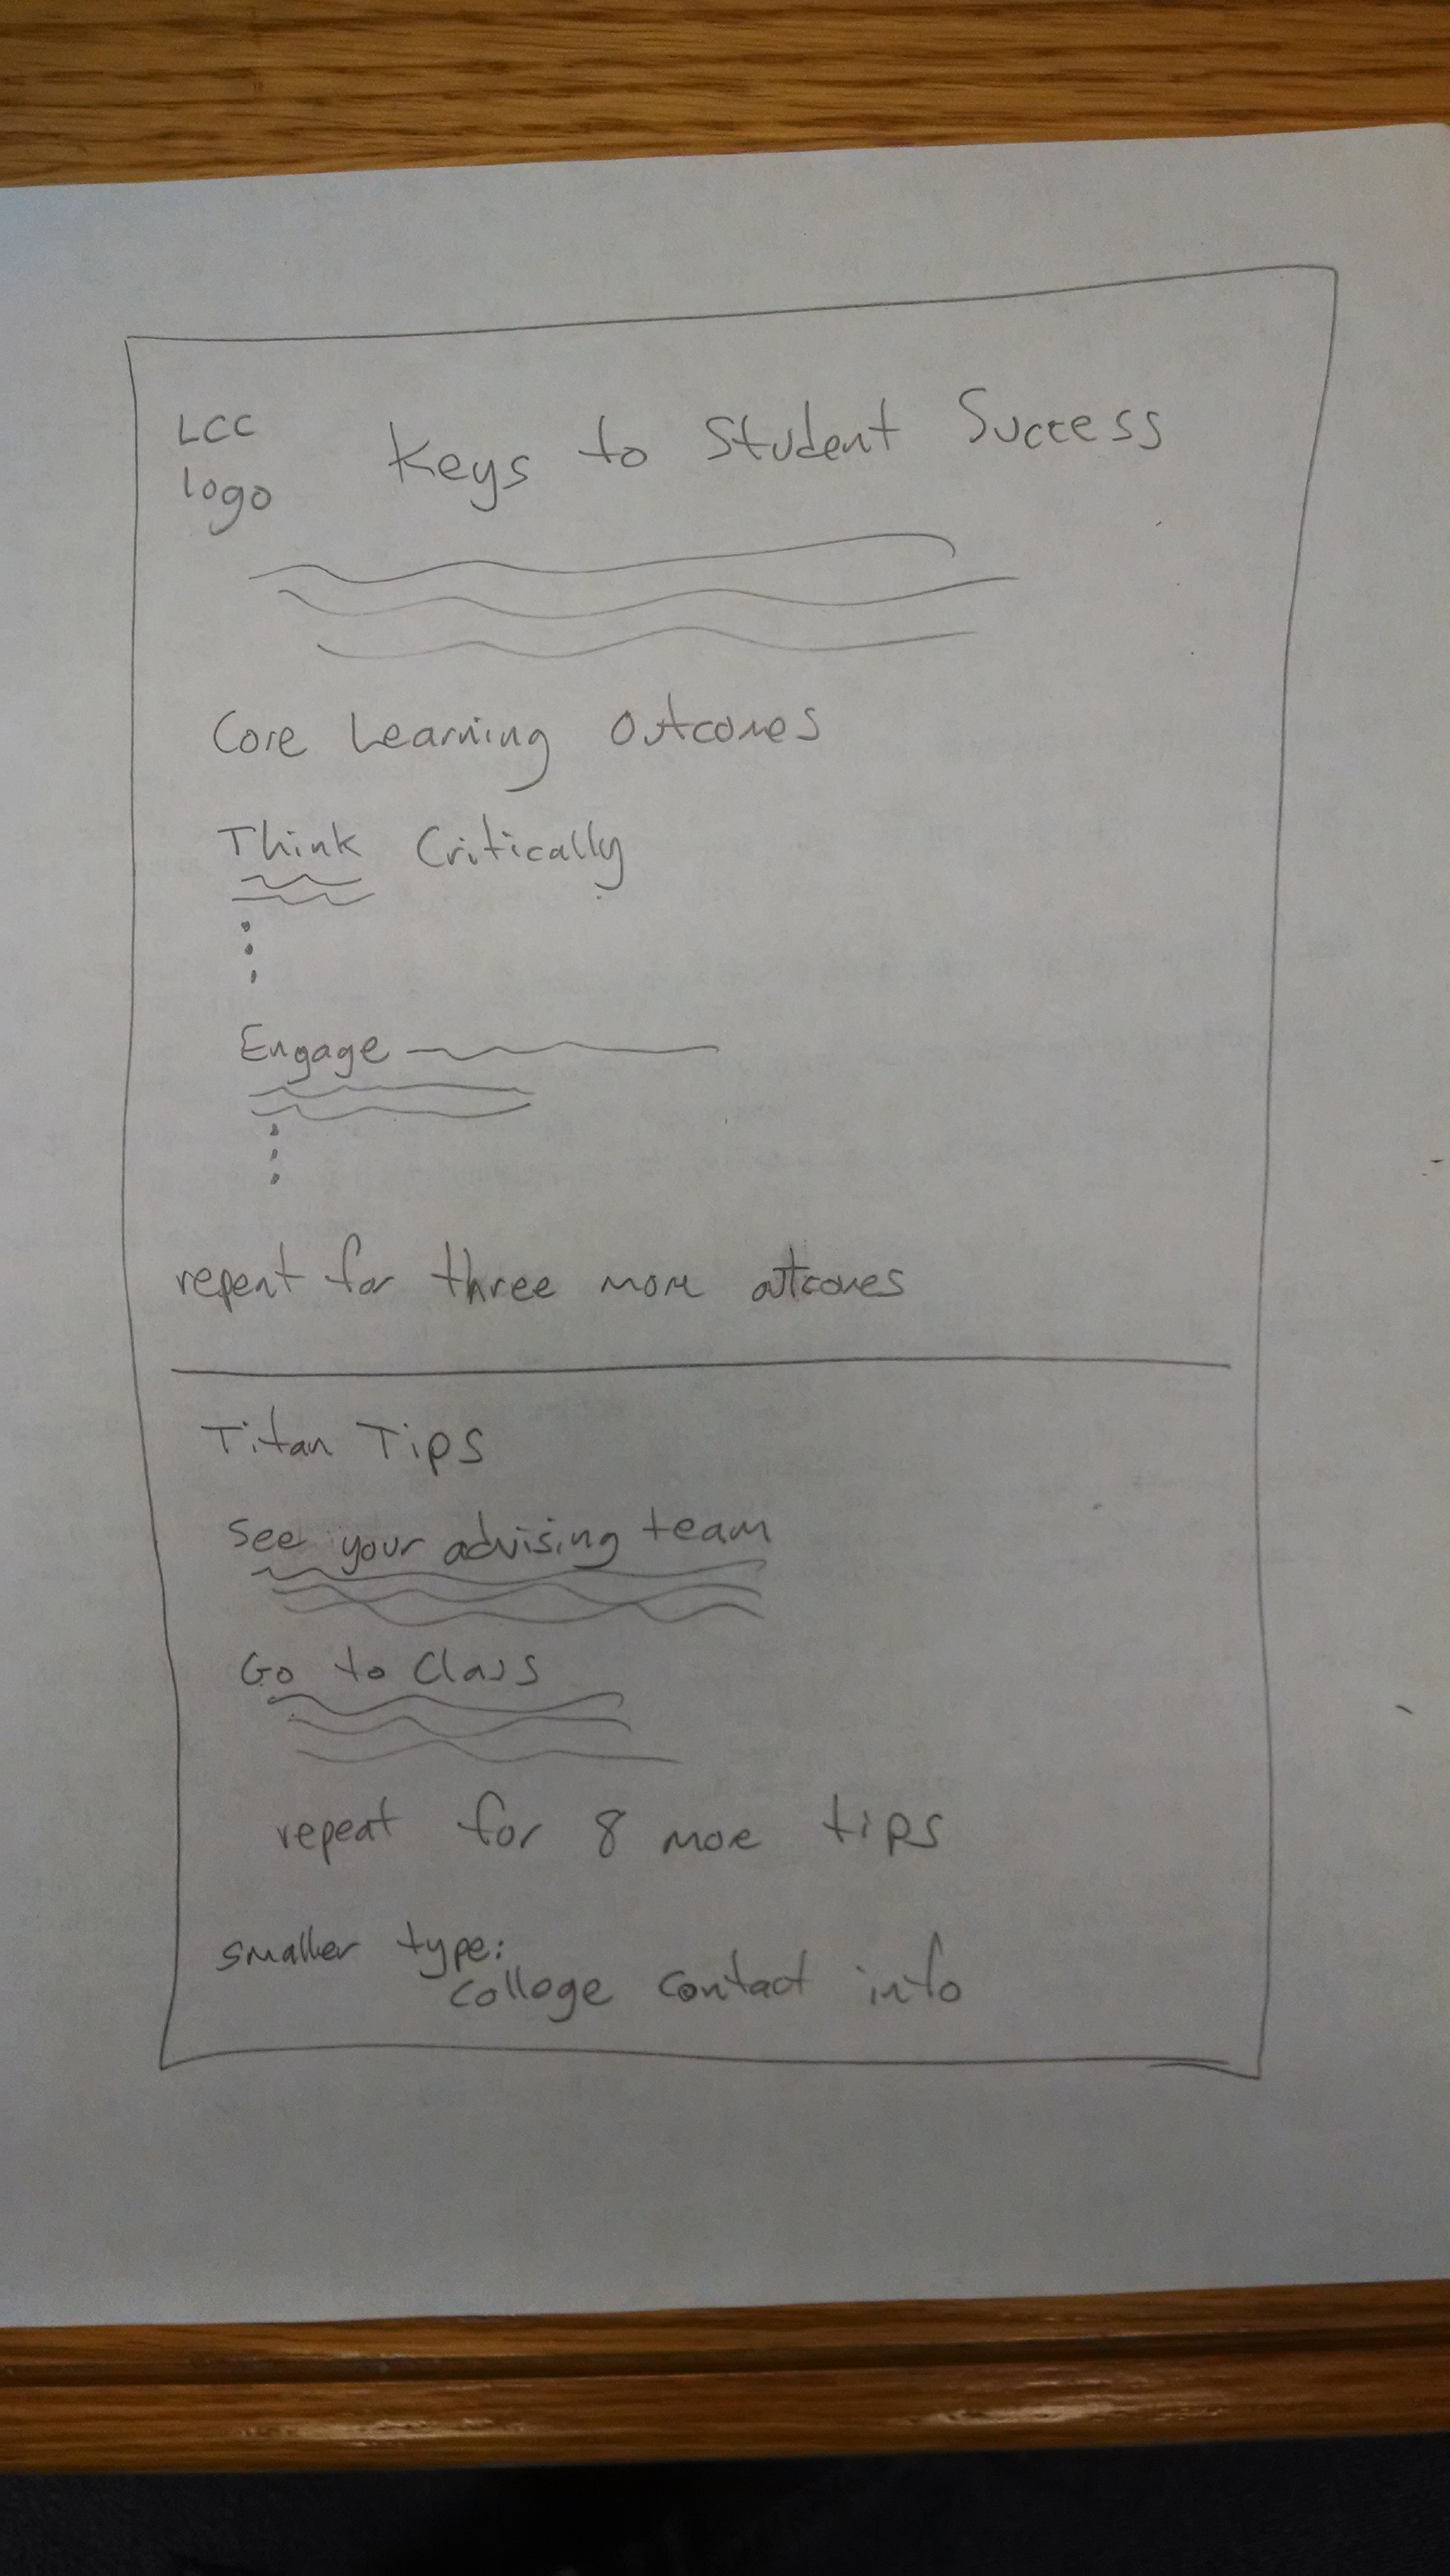 LCC
logo
Keys to Student Success
Core Learning Outcomes
Think Critically
Engage
repeat for three more outcomes
Titan Tips
See your advising team
Go to Class
repeat for 8 more tips
smaller type:
college contact info